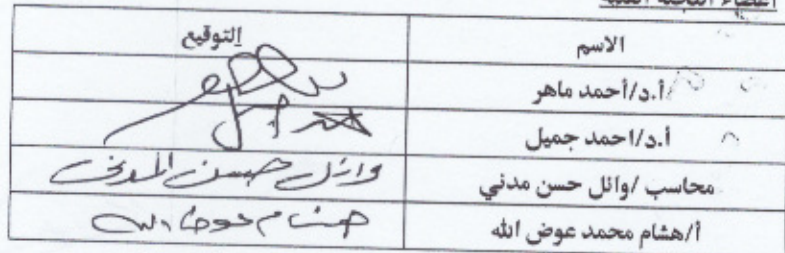 أعضاء اللجنة الفنية
الاسم التوقيع
أ.د/أحمد ماهر
أ.د/احمد جميل
محاسب /وائل حسن مدني وائل حسن المدني
أ/هشام محمد عوض الله هشام عوض الله